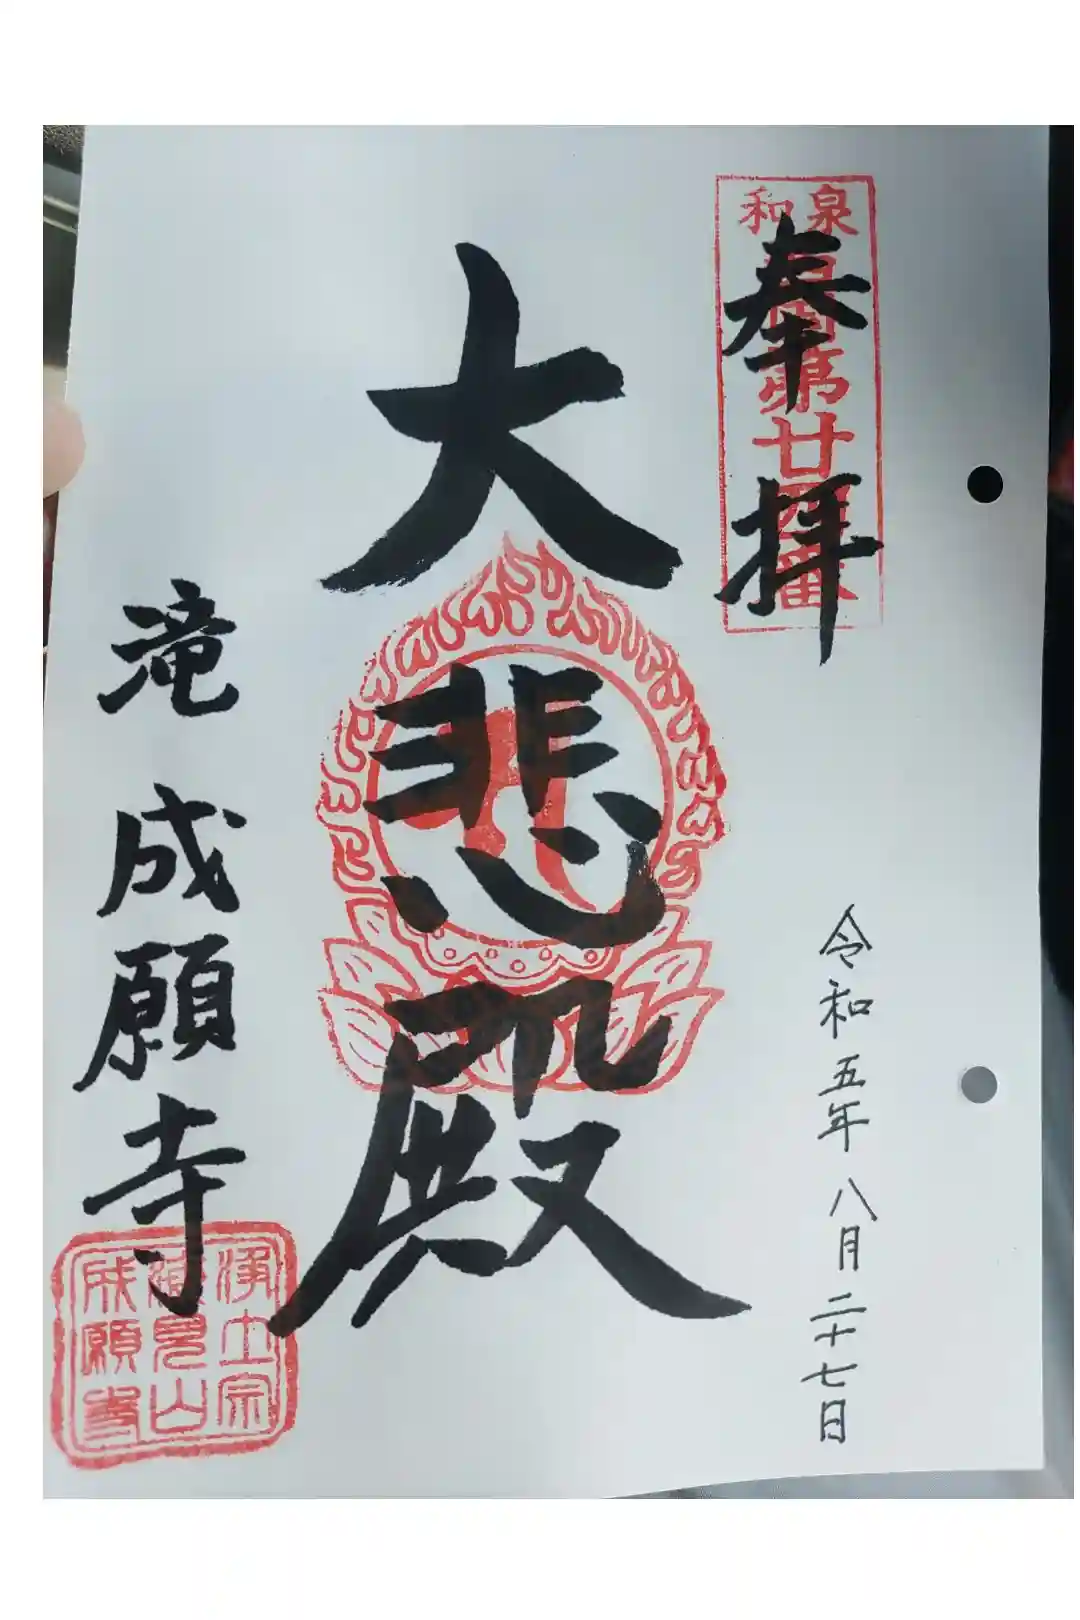 奉拝
和泉
西国第廿四番
令和五年八月二十七日
大悲殿
滝 成願寺
浄土宗
成願寺